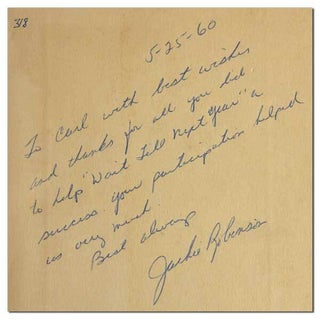 5-25-60
To Carl with best wishes
and thanks for all you did
to help "Wait Till Next Year" a
success. your participation helped
us very much.
Best always
Jackie Robinson